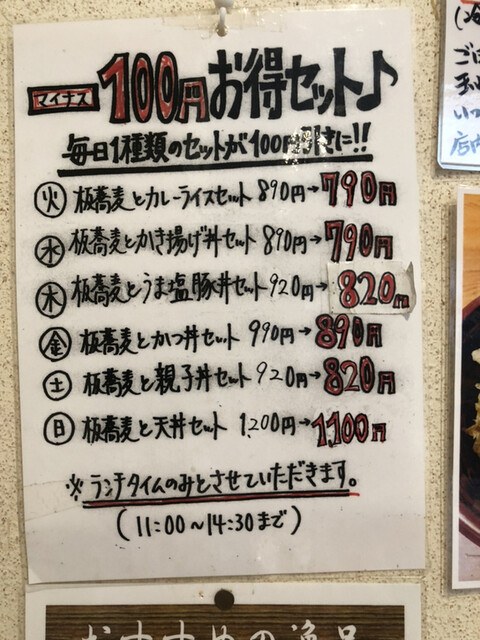 マイナス 100円お得セット♪
毎日1種類のセットが100円引きに!!
火 板蕎麦とカレーライスセット 890円→790円
水 板蕎麦とかき揚げ丼セット 890円→790円
木 板蕎麦とうま塩豚丼セット 920円→820円
金 板蕎麦とかつ丼セット 990円→890円
土 板蕎麦と親子丼セット 920円→820円
日 板蕎麦と天丼セット 1,200円→1100円
※ランチタイムのみとさせていただきます。
(11:00〜14:30まで)
店内